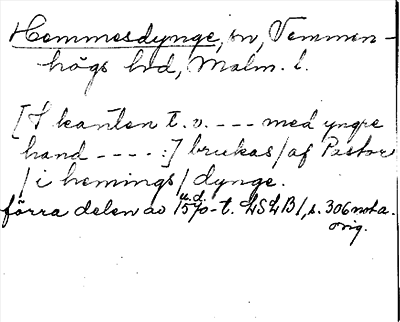 Hemmesdynge, sn, Vemmen-
högs hd, Malm. l.
[I kanten t. v. --- med yngre
hand ----:] brukas / af Pastor
/ i hemings / dynge.
u. d.
förra delen av 1570-t. LSLB1, s. 306 nota.
orig.